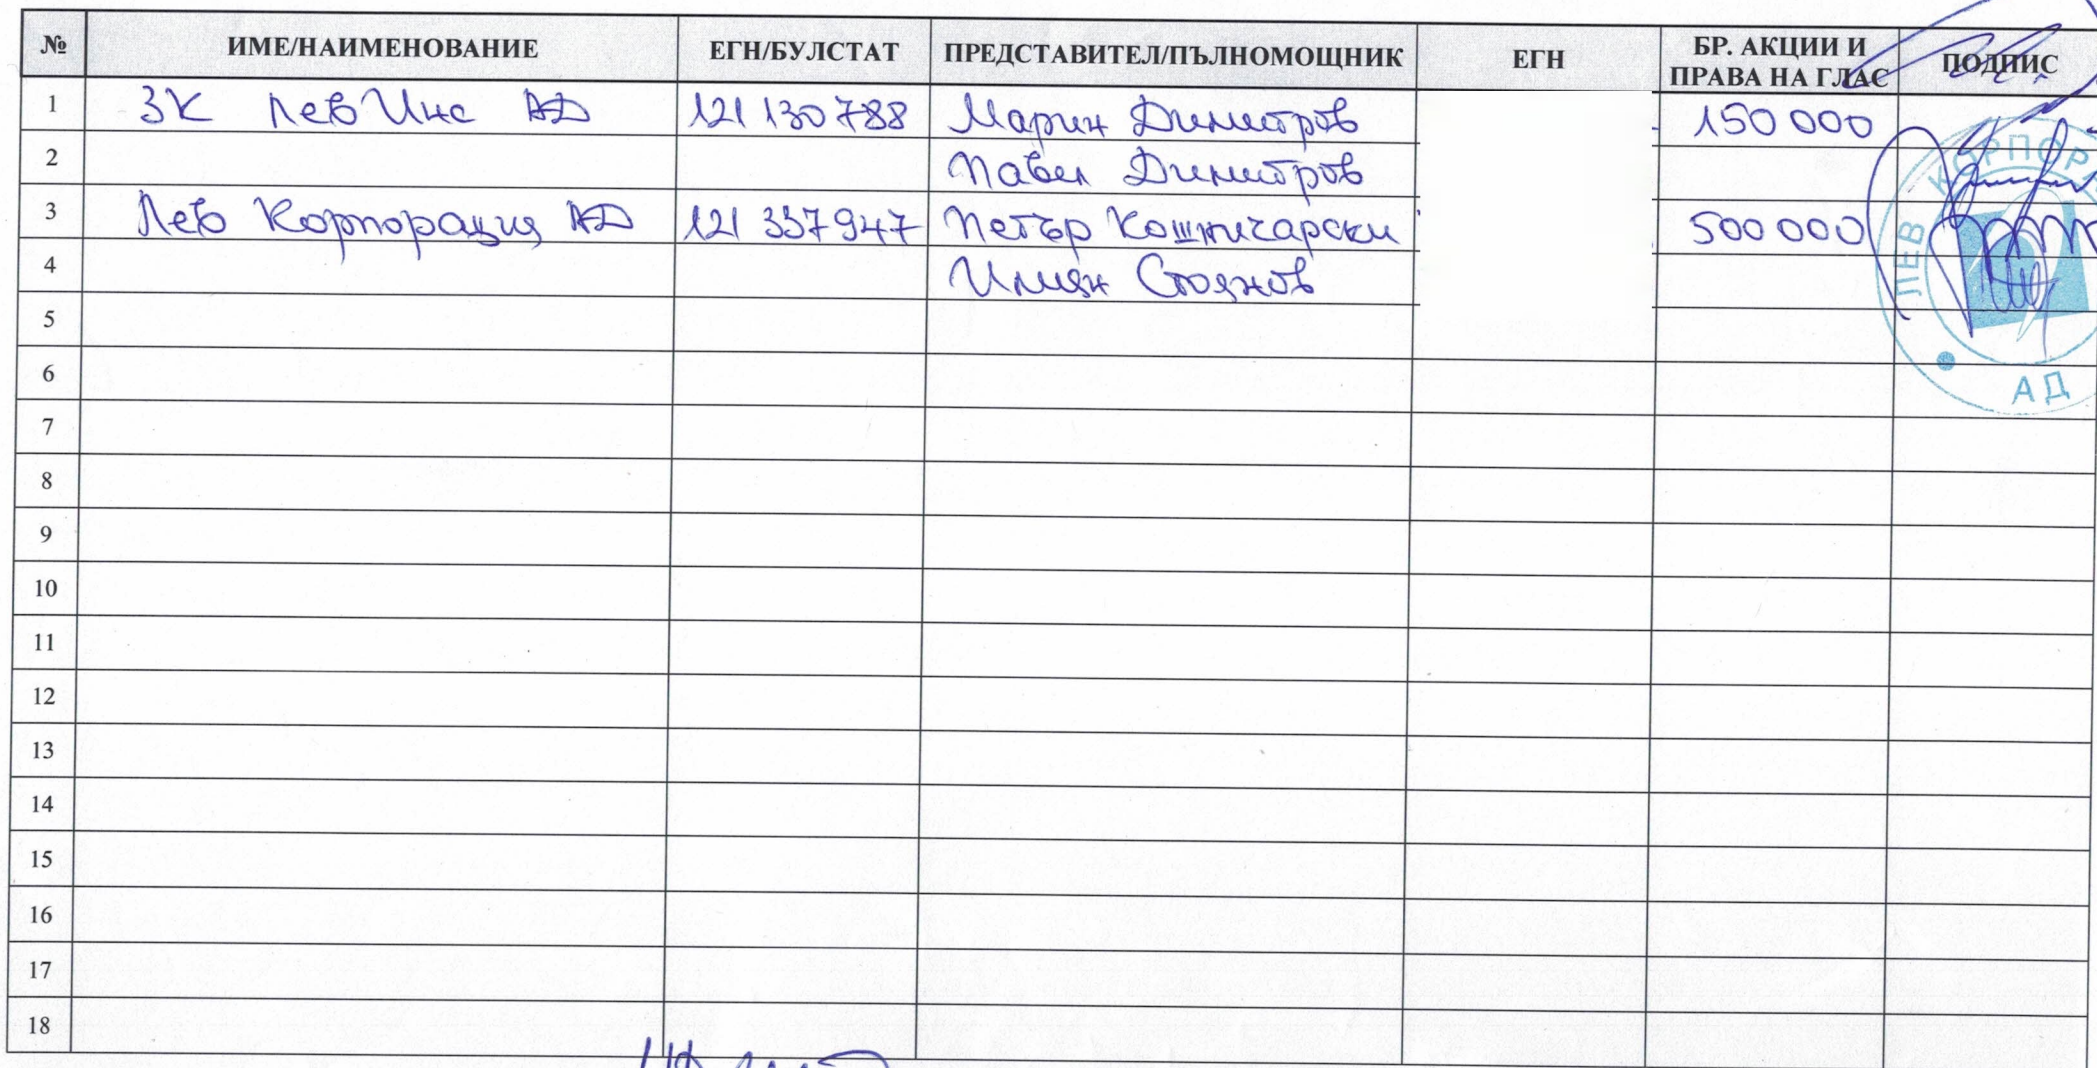 № ИМЕ/НАИМЕНОВАНИЕ ЕГН/БУЛСТАТ ПРЕДСТАВИТЕЛ/ПЪЛНОМОЩНИК ЕГН БР. АКЦИИ И ПРАВА НА ГЛАС ПОДПИС
1 ЗК Лев Инс АД 121130788 Марин Димитров 150 000
2 Павел Димитров
3 Лев Корпорация АД 121 337947 Петър Кошничарски 500 000
4 Илиян Стоянов
5
6
7
8
9
10
11
12
13
14
15
16
17
18
ЛЕВ КОРПОР
АД